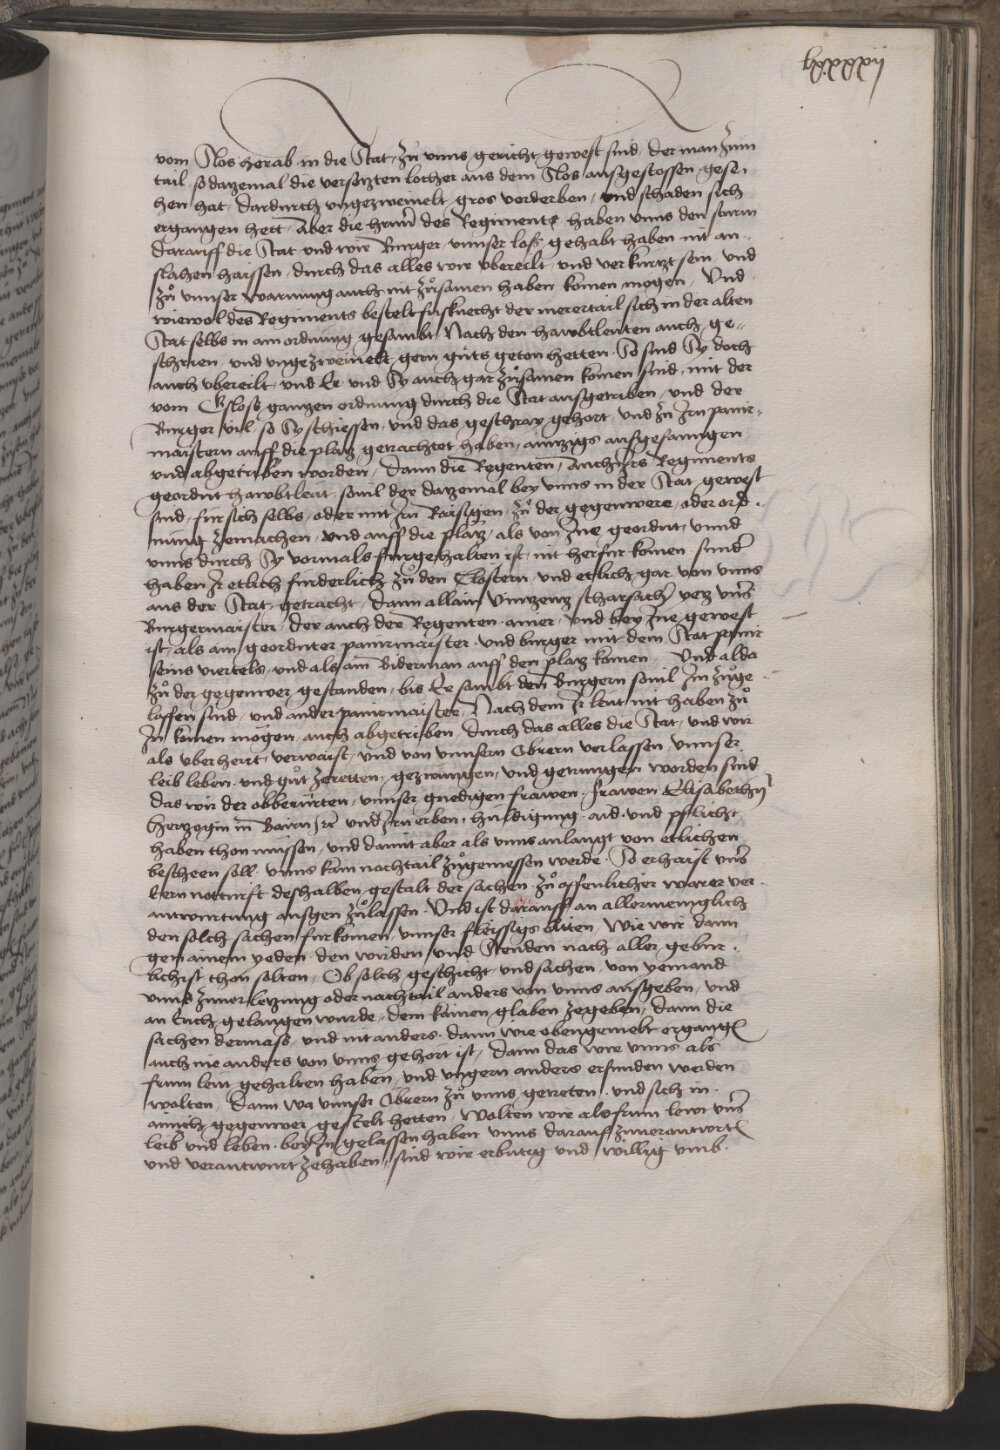 lxxxxij
vom Slos herab in die Stat zů vnns gericht gewest sind, der man zům
tail, so dazemal die versetzten locher aus dem Slos ausgestossen, gese,
hen hat, dardurch vngezweiuelt gros verderben, vnd schaden sich
ergangen hett, Aber die herrn des Regiments haben vnns den sturm
darauff die Stat vnd wir Burger vnnser losz gehabt haben nit an,
slahen haissen, durch das alles wir vbereilt, vnd verkurtzt sein, vnd
zů vnnser warnung auch nit zůsamen haben komen mogen, Vnd
wiewol des Regiments bestelt fůsknecht der merertail sich in der alten
Stat selbs in ain ordnung gesambt, Nach den hawbtleuten auch ge,,
schrien, vnd vngezweiuelt, gern gůts geton hetten. So sind Sy doch
auch vbereilt, vnd Ee vnd Sy auch gar zůsamen komen sind, mit der
vom Gsloss gantzen ordnung durch die Stat ausgetriben, vnd der
Burger vil, so Sy schiessen, vnd das geschray gehort, vnd zu Irn panir,
maistern auff die platz getrachtet haben, ainnzigs aufgefanngen
vnd abgetriben worden, Dann die Regenten, Auch Irs Regiments
geordnt hawbtleut, souil der dazemal bey vnns in der Stat gewest
sind, für sich selbs, oder mit Irn Raisigen, zů der gegenwere, oder ord,
nung zemachen, vnd auff die platz, als von Ine geordnt, vnnd
vnns durch Sy vormals furgehalten ist, nit herfur komen. sunder
haben Ir etlich funderlich zů den Clostern, vnd etlich gar von vnns
aus der Stat getracht, Dann allain Vintzentz scharsach yetz vnser
Burgermaister, der auch der Regenten ainer, vnd bey Ine gewest
ist, als ain geordneter panirmaister, vnd burger mit dem Stat panir
seins viertels, vnd als ain Biderman auff den platz komen, Vnd alda
zů der gegenwer gestanden, bis Er sambt den Burgern souil Im zůge
loffen sind, vnd ander panirmaister, Nach dem Ir leut nit haben zů
In komen mögen, auch abgetriben, Durch das alles die Stat, vnd wir
als vberherrt, verwaist, vnd von vnnsern Obrern verlassen vnnser
leib leben, vnd gůt zeretten, gezwungen, vnd getrungen worden sind
das wir der obberürten, vnnser gnedigen frawen, frawen Elisabethn
hertzogin in Bairn Irr vnd Irn erben, huldigung, aid, vnd pflicht
haben thon můssen, vnd damit aber als vnns anlangt von etlichen
bescheen soll, vnns kain nachtail zůgemessen werde. So erhaist vnns
Eern notturft deshalben, gestalt der sachen, zů offenlicher warer ver,
antwurtung ausgen zůlassen. Vnd ist darauff an allermeniglich
den solch sachen furkomen, vnnser fleissigs biten, Wie wir dann
gein ainem yeden, den wirden, vnd Stenden nach aller gebur,
lichist thon solten, Ob solch geschicht, vnd sachen, von yemand
vnns zuuerletzung oder nachtail anders von vnns ausgeben, vnd
an Euch gelangen wurde, dem kainen glaben zegeben, dann die
sachen dermass, vnd nit anders, dann wie obengemelt ergangen
auch nie anders von vnns gehort ist, Dann das wir vnns als
frum leut gehalten haben, vnd vngern anders erfunden werden
wolten, Dann wa vnnser Obrern zů vnns getreten, vnd sich in
ainich gegenwer gestelt hetten, Wolten wir als frum lewt vnnser
leib vnd leben, bey In gelassen haben vnns darauf zuuerantwurten
vnd verantwurt zehaben, sind wir erbutig vnd willig vmb.